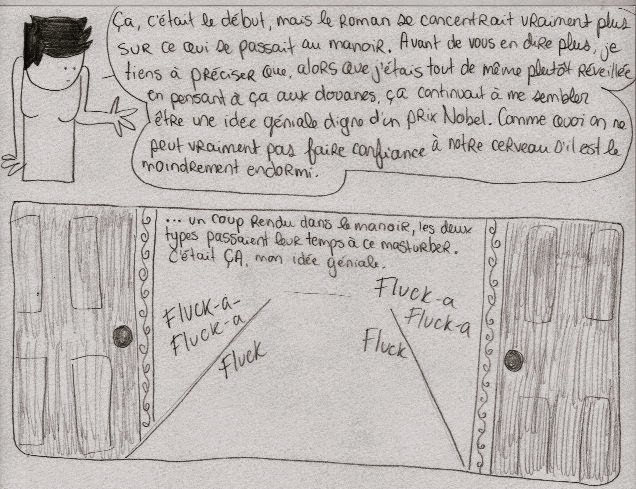 Ça, c'était le début, mais le roman se concentrait vraiment plus
sur ce qui se passait au manoir. Avant de vous en dire plus, je
tiens à préciser que, alors que j'étais tout de même plutôt réveillée
en pensant à ça aux douanes, ça continuait à me sembler
être une idée géniale digne d'un prix Nobel. Comme quoi on ne
peut vraiment pas faire confiance à notre cerveau s'il est le
moindrement endormi.
... un coup rendu dans le manoir, les deux
types passaient leur temps à ce masturber.
C'était ÇA, mon idée géniale.
Fluck-a-
Fluck-a
Fluck
Fluck-a
Fluck-a
Fluck